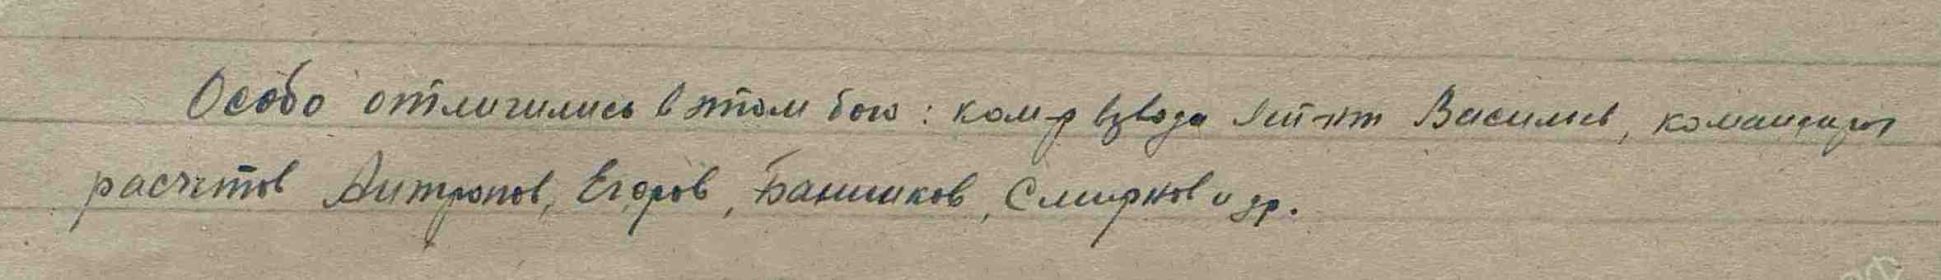 Особо отличились в этом бою: ком-р взвода лей-нт Васильев, командиры
расчетов Антропов, Егоров, Банников, Смирнов и др.